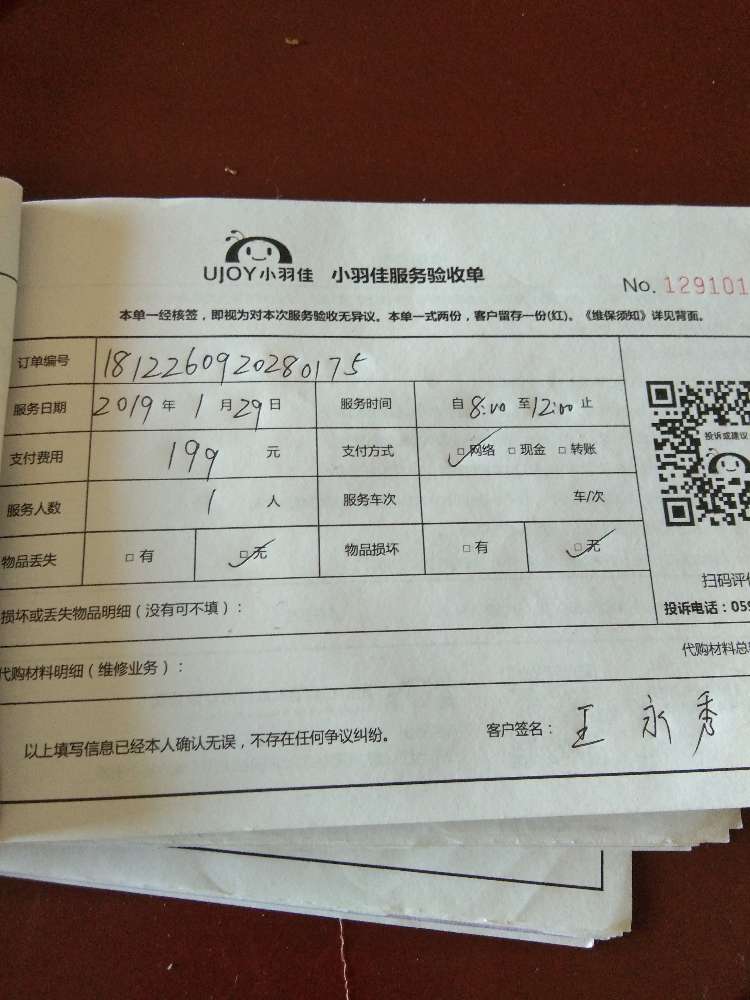 UJOY小羽佳 小羽佳服务验收单
No. 129101
本单一经核签，即视为对本次服务验收无异议。本单一式两份，客户留存一份(红)。《维保须知》详见背面。
订单编号 1812260920280175
服务日期 2019 年 1 月 29 日 服务时间 自 8:00 至 12:00 止
投诉或建议
支付费用 199 元 支付方式 □ 网络 □ 现金 □ 转账
服务人数 1 人 服务车次 车/次
物品丢失 □ 有 □ 无 物品损坏 □ 有 □ 无
扫码评价
损坏或丢失物品明细（没有可不填）：
投诉电话：059
代购材料明细（维修业务）： 代购材料总
以上填写信息已经本人确认无误，不存在任何争议纠纷。 客户签名： 王永秀